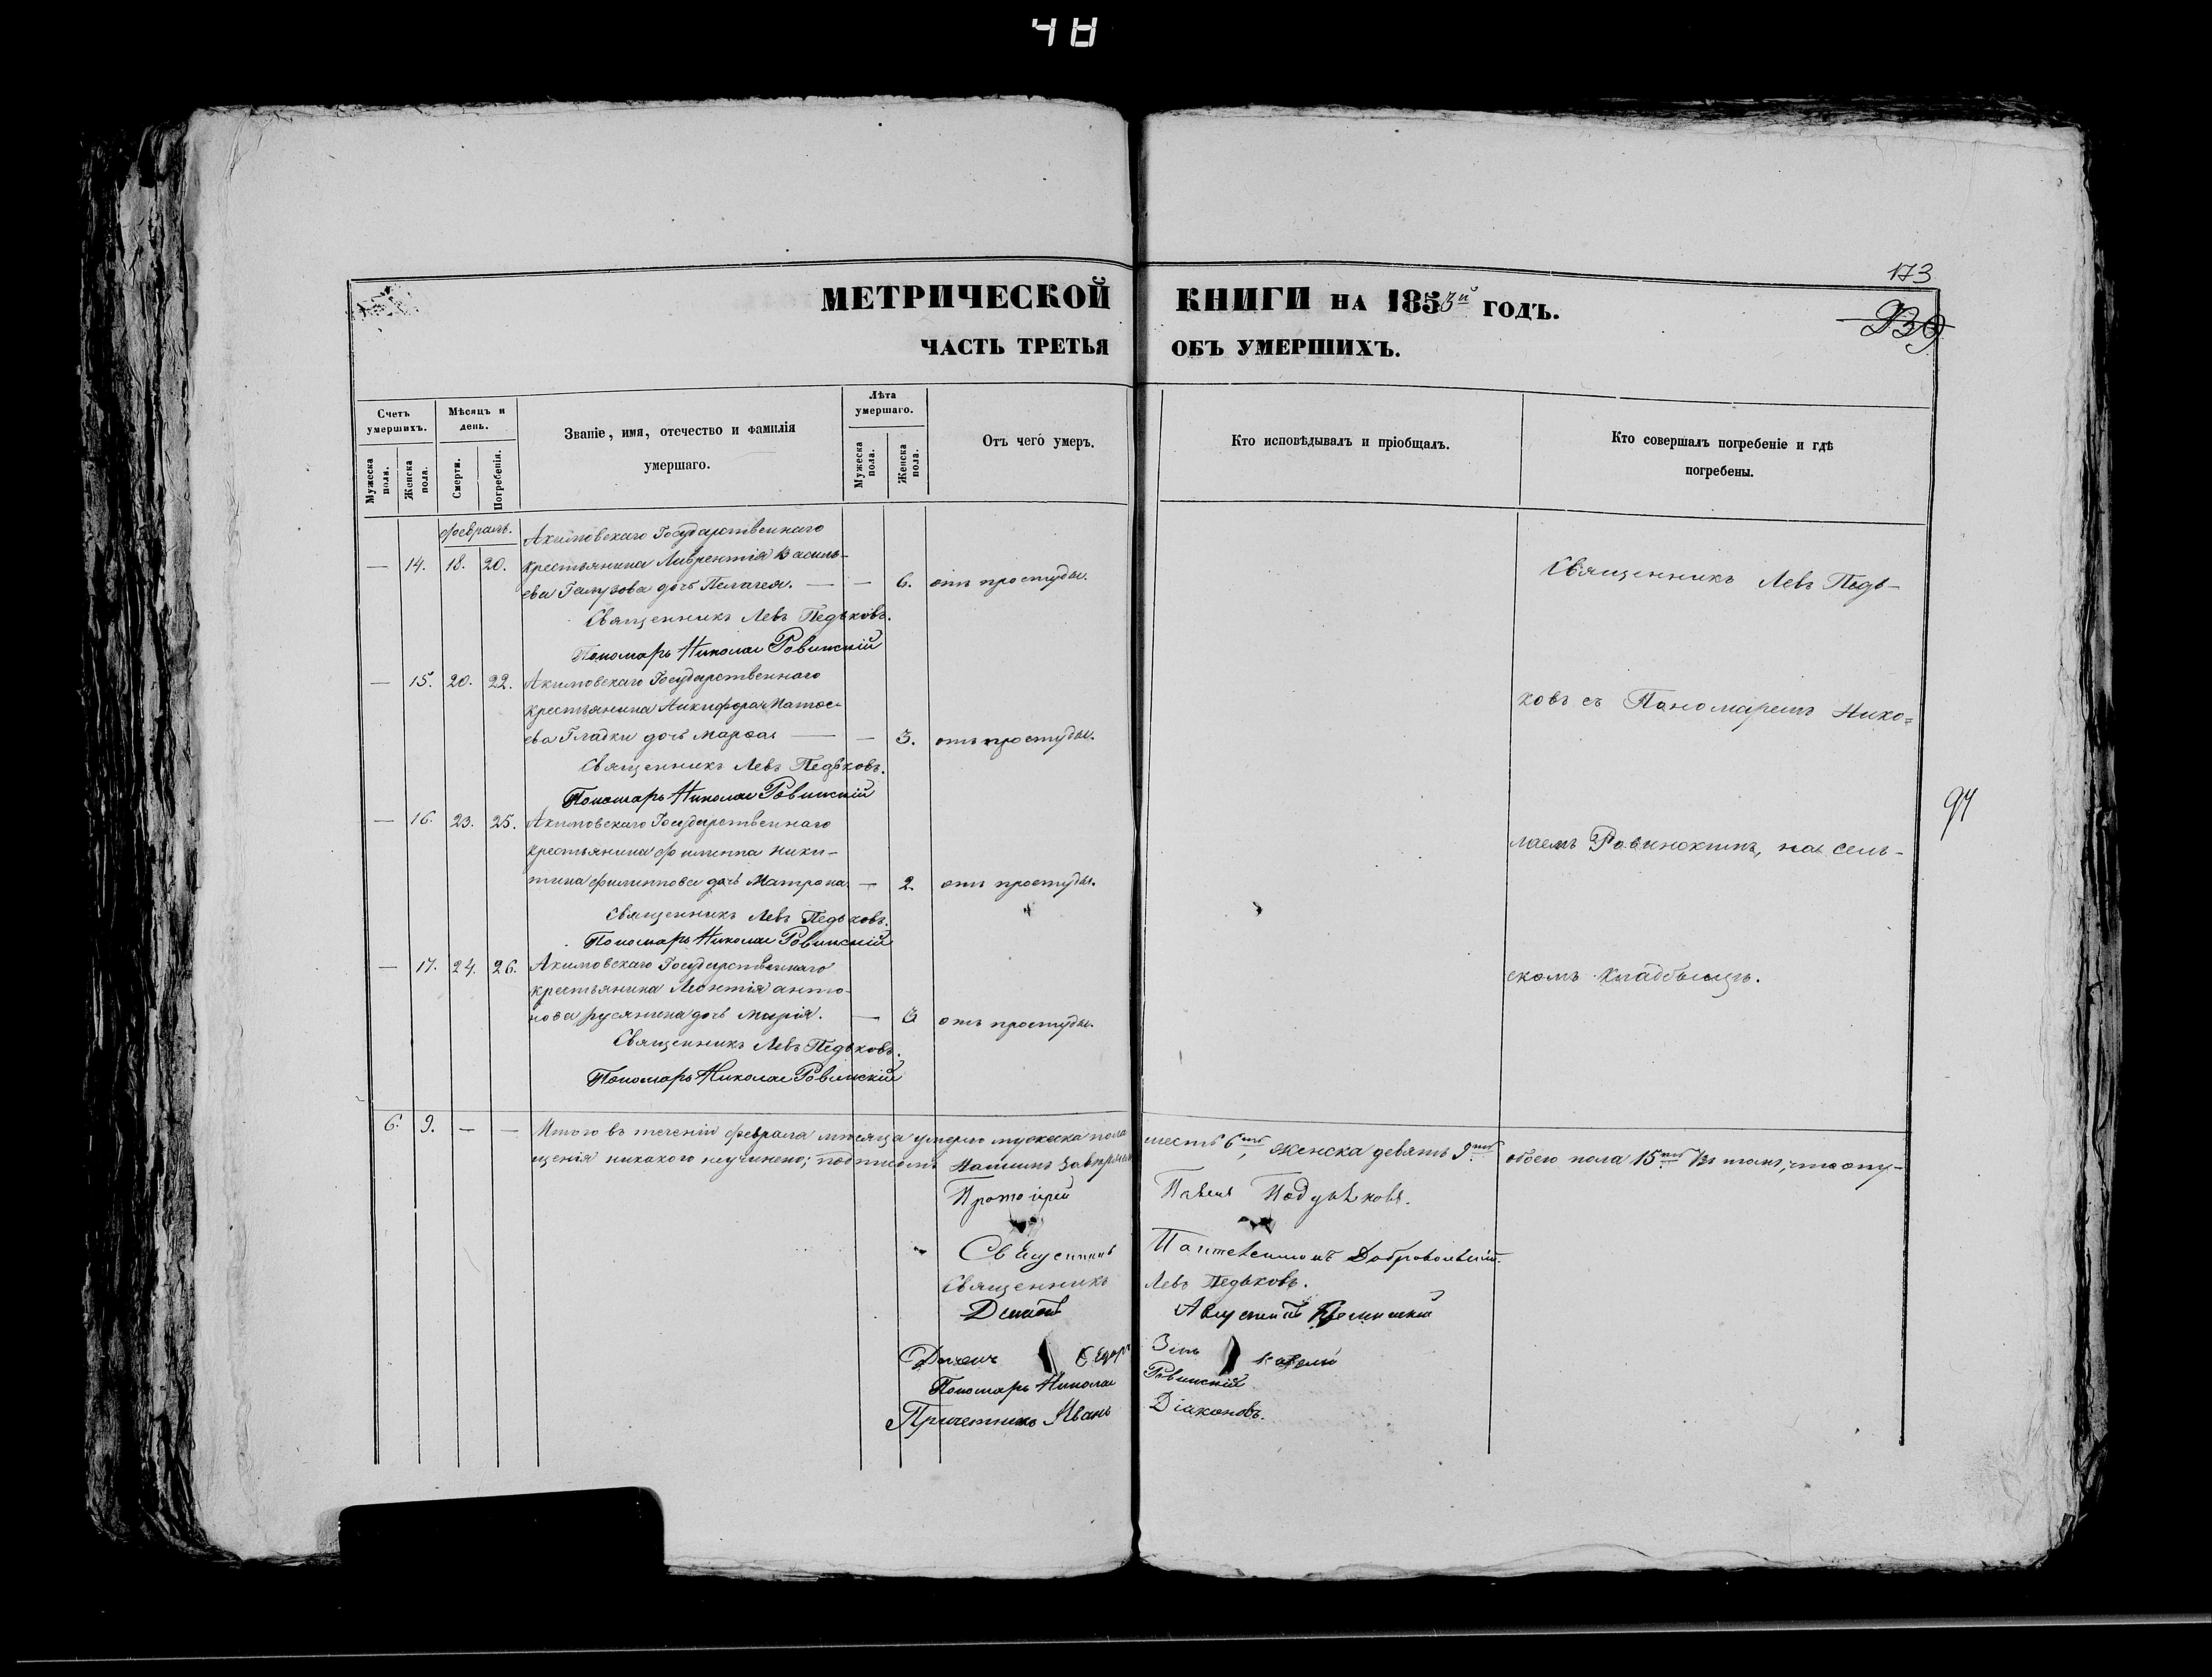 48
173
МЕТРИЧЕСКОЙ КНИГИ НА 1853й ГОДЪ.
ЧАСТЬ ТРЕТЬЯ ОБЪ УМЕРШИХЪ.
Счетъ умершихъ.
Мужеска пола.
Женска пола.
Мѣсяцъ и день.
Смерти.
Погребенія.
Званіе, имя, отечество и фамилія умершаго.
Лѣта умершаго.
Мужеска пола.
Женска пола.
Отъ чего умеръ.
Кто исповѣдывалъ и пріобщалъ.
Кто совершалъ погребеніе и гдѣ погребены.
Февраль.
Акимовскаго Государственнаго
— 14. 18. 20. крестьянина Лаврентія Василь-
ева дочь Пелагея. — — 6. отъ простуды.
Священникъ Левъ Педьковъ.
Пономарь Николай Ровинскій
— 15. 20. 22. Акимовскаго Государственнаго
крестьянина Никифора Матве-
ева Гладки дочь Марфа — — 3. отъ простуды.
Священникъ Левъ Педьковъ.
Пономарь Николай Ровинскій
— 16. 23. 25. Акимовскаго Государственнаго
крестьянина Филиппа Ники-
тина Филиппова дочь Матрона — 2. отъ простуды.
Священникъ Левъ Педьковъ.
Пономарь Николай Ровинскій
— 17. 24. 26. Акимовскаго Государственнаго
крестьянина Леонтія Анто-
нова Русянина дочь Марія. — 3 отъ простуды.
Священникъ Левъ Педьковъ.
Пономарь Николай Ровинскій
Священникъ Левъ Педь-
ковъ съ Пономаремъ Нико=
лаемъ Ровинскимъ, на сель-
скомъ кладбищѣ.
94
6. 9. — — Итого въ теченіи февраля мѣсяца умерло мужеска пола шесть 6ть, женска девять 9ть обоего пола 15ть Въ томъ, что опу-
щенія никакого неучинено; подписомъ нашимъ
Протоіерей Павелъ
Священникъ Пантелеимонъ Добровольскій.
Священникъ Левъ Педьковъ.
Пономарь Николай Ровинскій
Причетникъ Иванъ Діаконовъ.